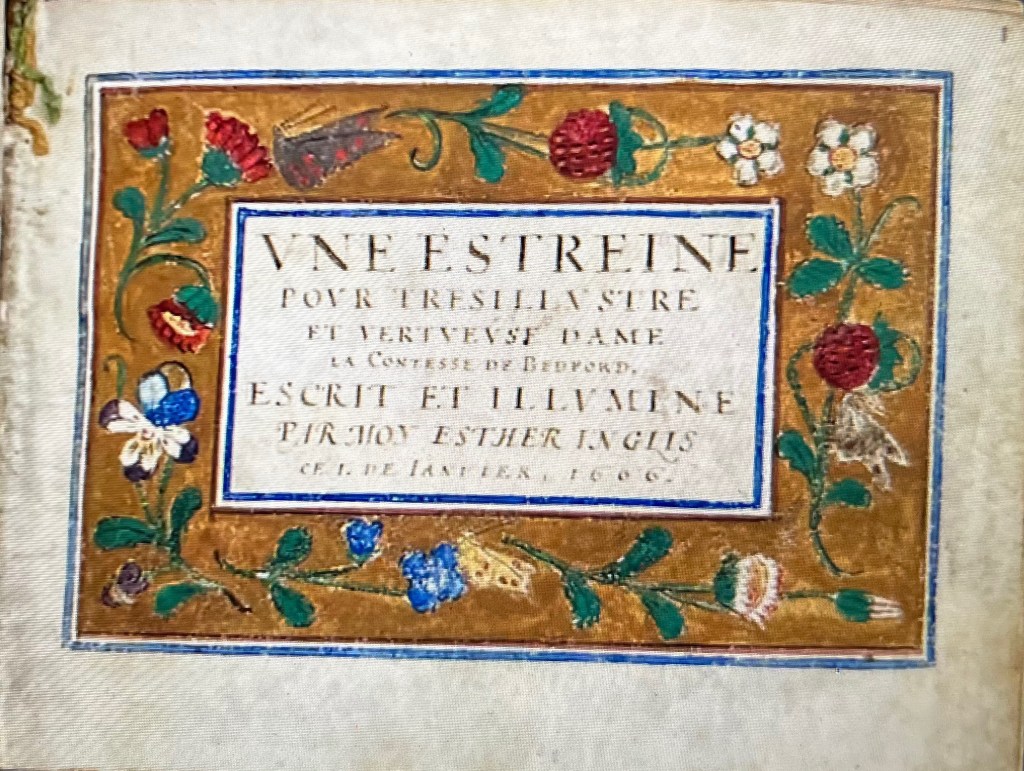 VNE ESTREINE
POVR TRESILLVSTRE
ET VERTVEVSE DAME
LA CONTESSE DE BEDFORD.
ESCRIT ET ILLVMINE
PAR MOY ESTHER INGLIS
CE 1. DE IANVIER, 1606.